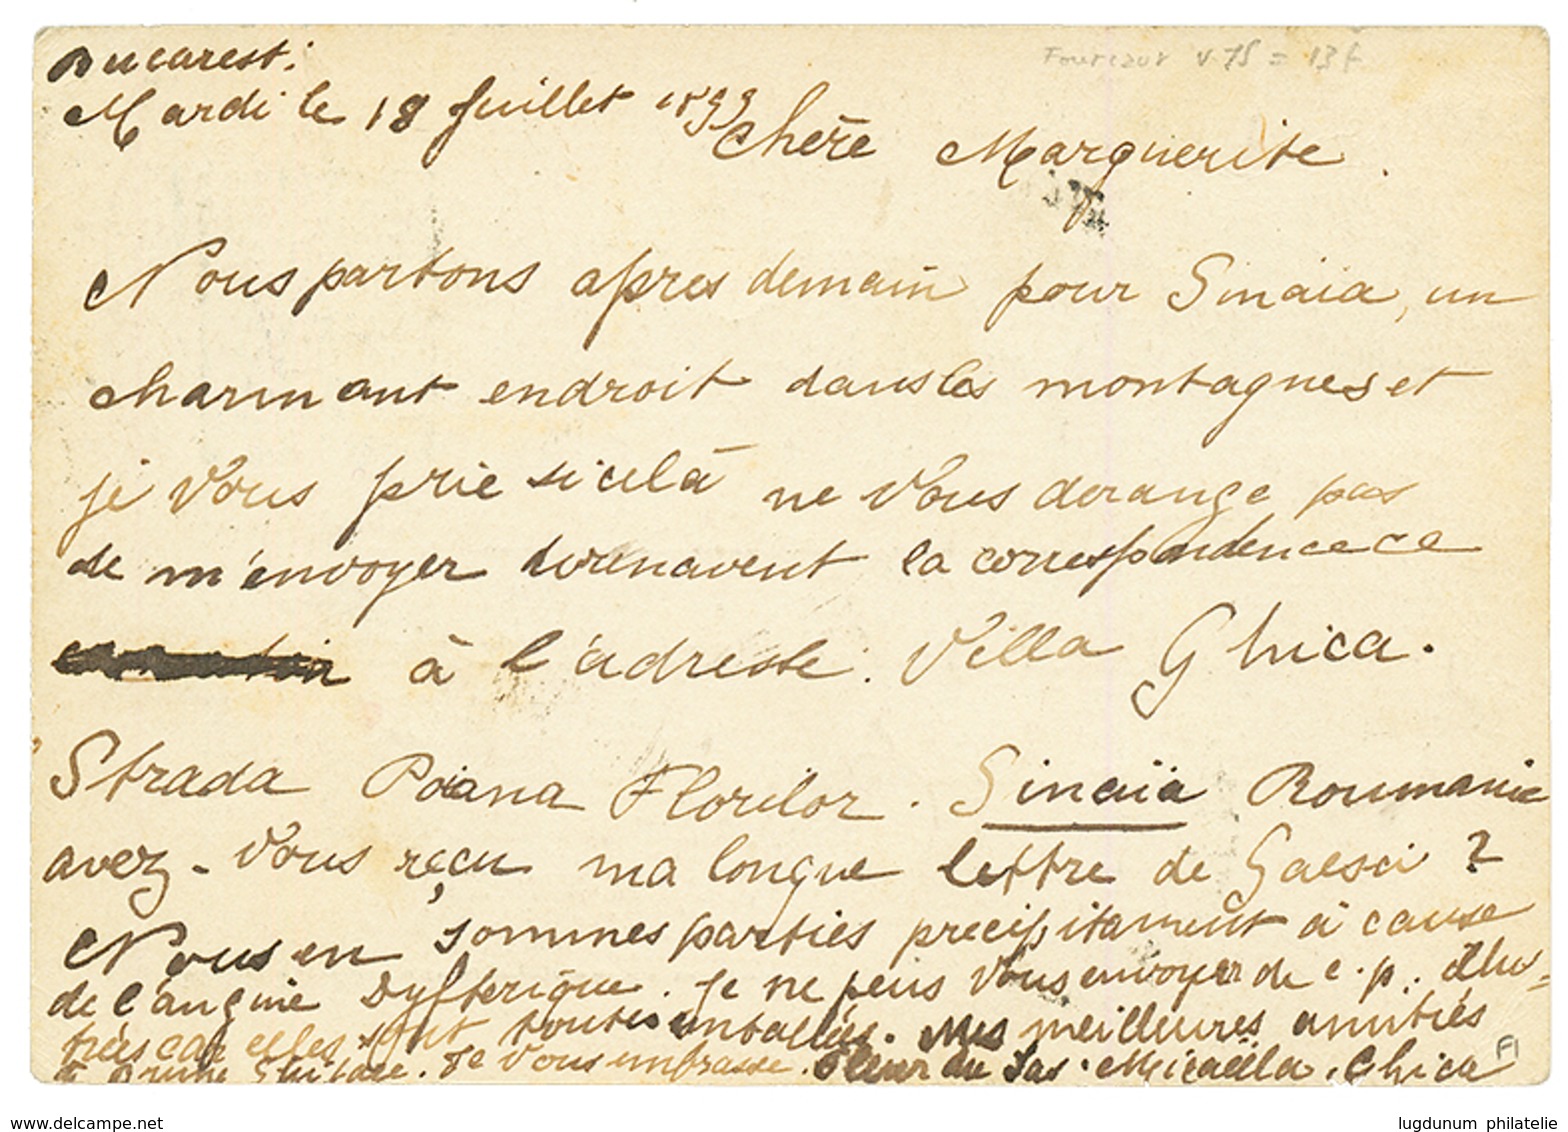 Bucarest.
Mardi le 18 Juillet 1899
Fourcaut v 75 = 13 f
Chère Marguerite.
Nous partons apres demain pour Sinaia, un
charmant endroit dans les montagnes et
je vous prie si cela ne vous derange pas
de m'envoyer dorenavent la correspondence ce
à l'adresse. Villa Ghica.
Strada Poiana Florilor. Sinaïa Roumanie
avez-vous reçu ma longue lettre de Gaesci ?
Nous en sommes parties precipitament à cause
de l'angine Dyfterique. Je ne peus vous envoyer de c.p. illus=
trées car elles sont toutes emballées. Mes meilleures amitiés
Je vous embrasse. Fleur du Micaëla. Ghica
F1
www.delcampe.net
lugdunum philatelie